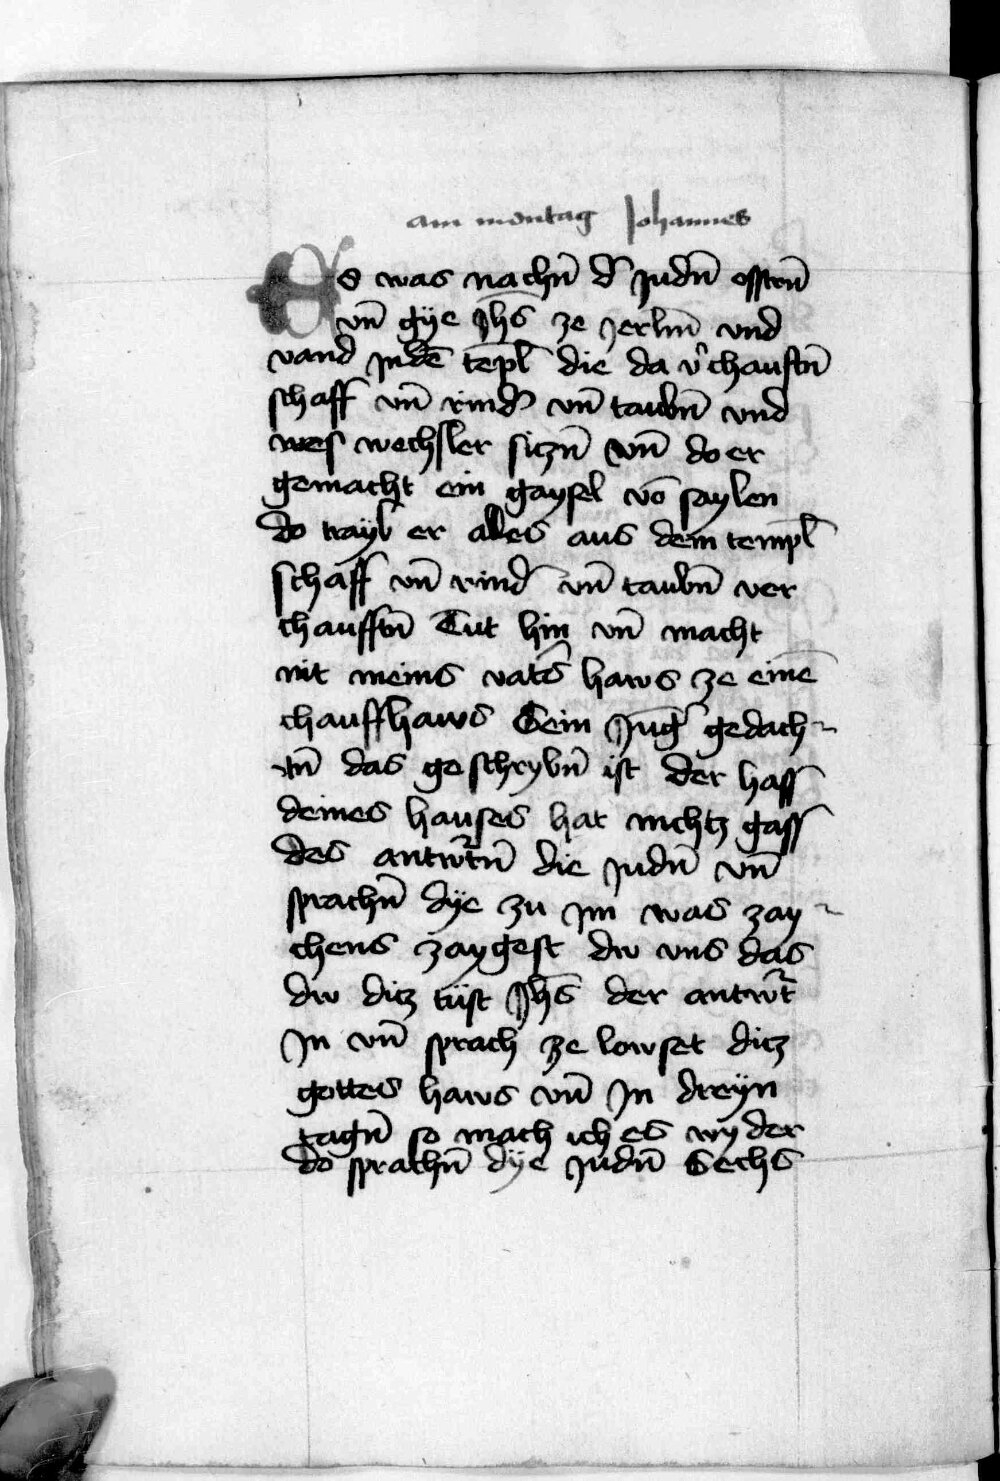 am montag Johannes
Es was nachn̄ d᷑ Judn̄ osstrn̄
vn̄ gÿe Jhs̄ ze Jerlm̄ vnd
vand Jn dē templ̄ die da v᷑chauftn̄
schaff vn̄ rind᷑ vn̄ taubn̄ vnd
wechsler sitzn̄ vn̄ do er
gemacht ein gaysel vō saylen
do trayb er alles aus dem templ̄
schaff vn̄ rind᷑ vn̄ taubn̄ ver
chaufftn̄ Tut hin vn̄ macht
nit meins vat᷑s haws ze einē
chauffhaws Sein Jūg᷑ gedach
tn̄ das geschrybn̄ ist der hass
deines hauses hat michtz gass
des antw᷑tn̄ die Judn̄ vn̄
sprachn̄ dÿe zu Jm was zay
chens zaygest dw vns das
dw ditz tüst Jhs̄ der antw᷑t
Jn vn̄ sprach ze lowset ditz
gottes haws vn̄ Jn dreÿn
tagn̄ so mach ich es wyder
do sprachn̄ dÿe Judn̄ Sechs